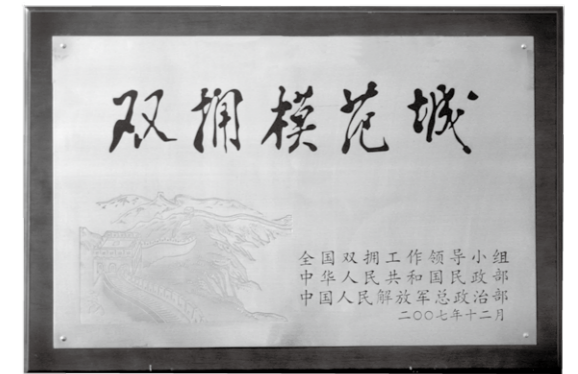 双拥模范城
全国双拥工作领导小组
中华人民共和国民政部
中国人民解放军总政治部
二〇〇七年十二月